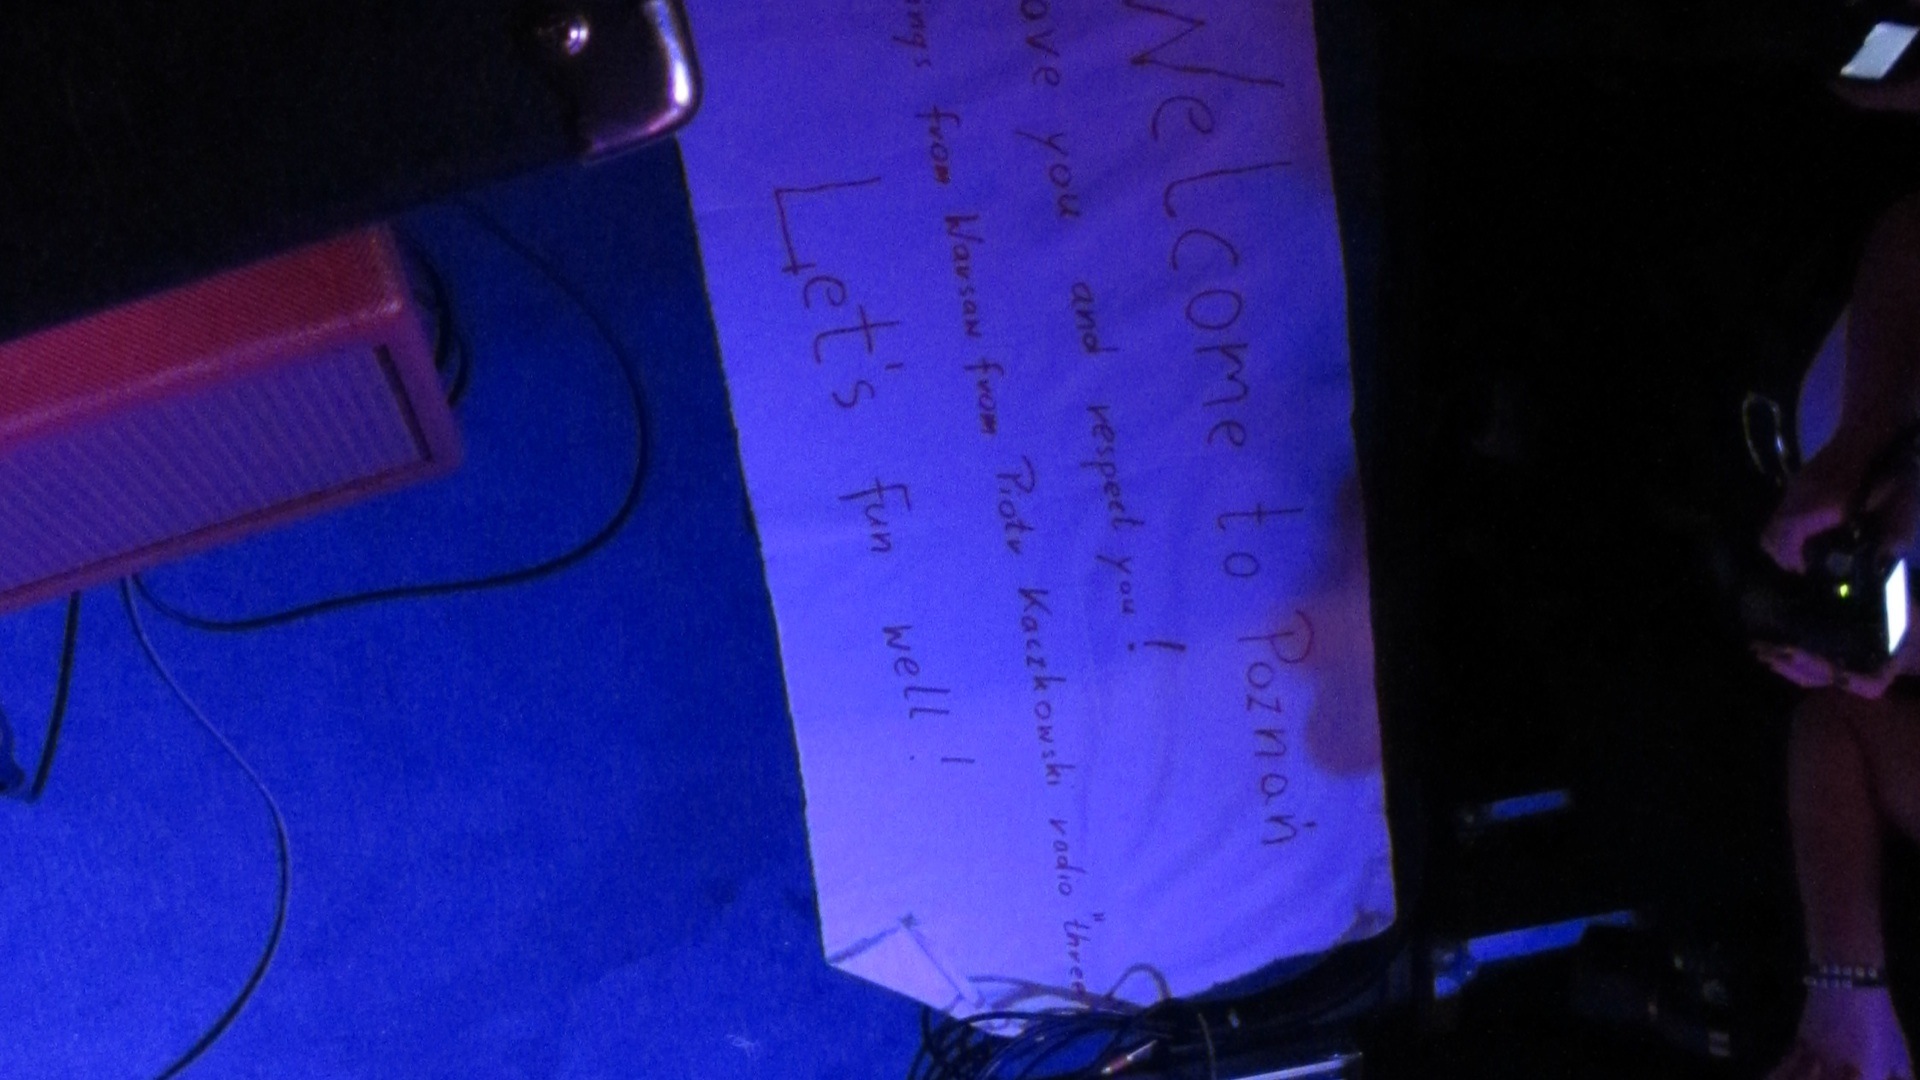 Welcome to Poznań
ove you and respect you!
ings from Warsaw from Piotr Kaczkowski radio "three
Let's fun well!